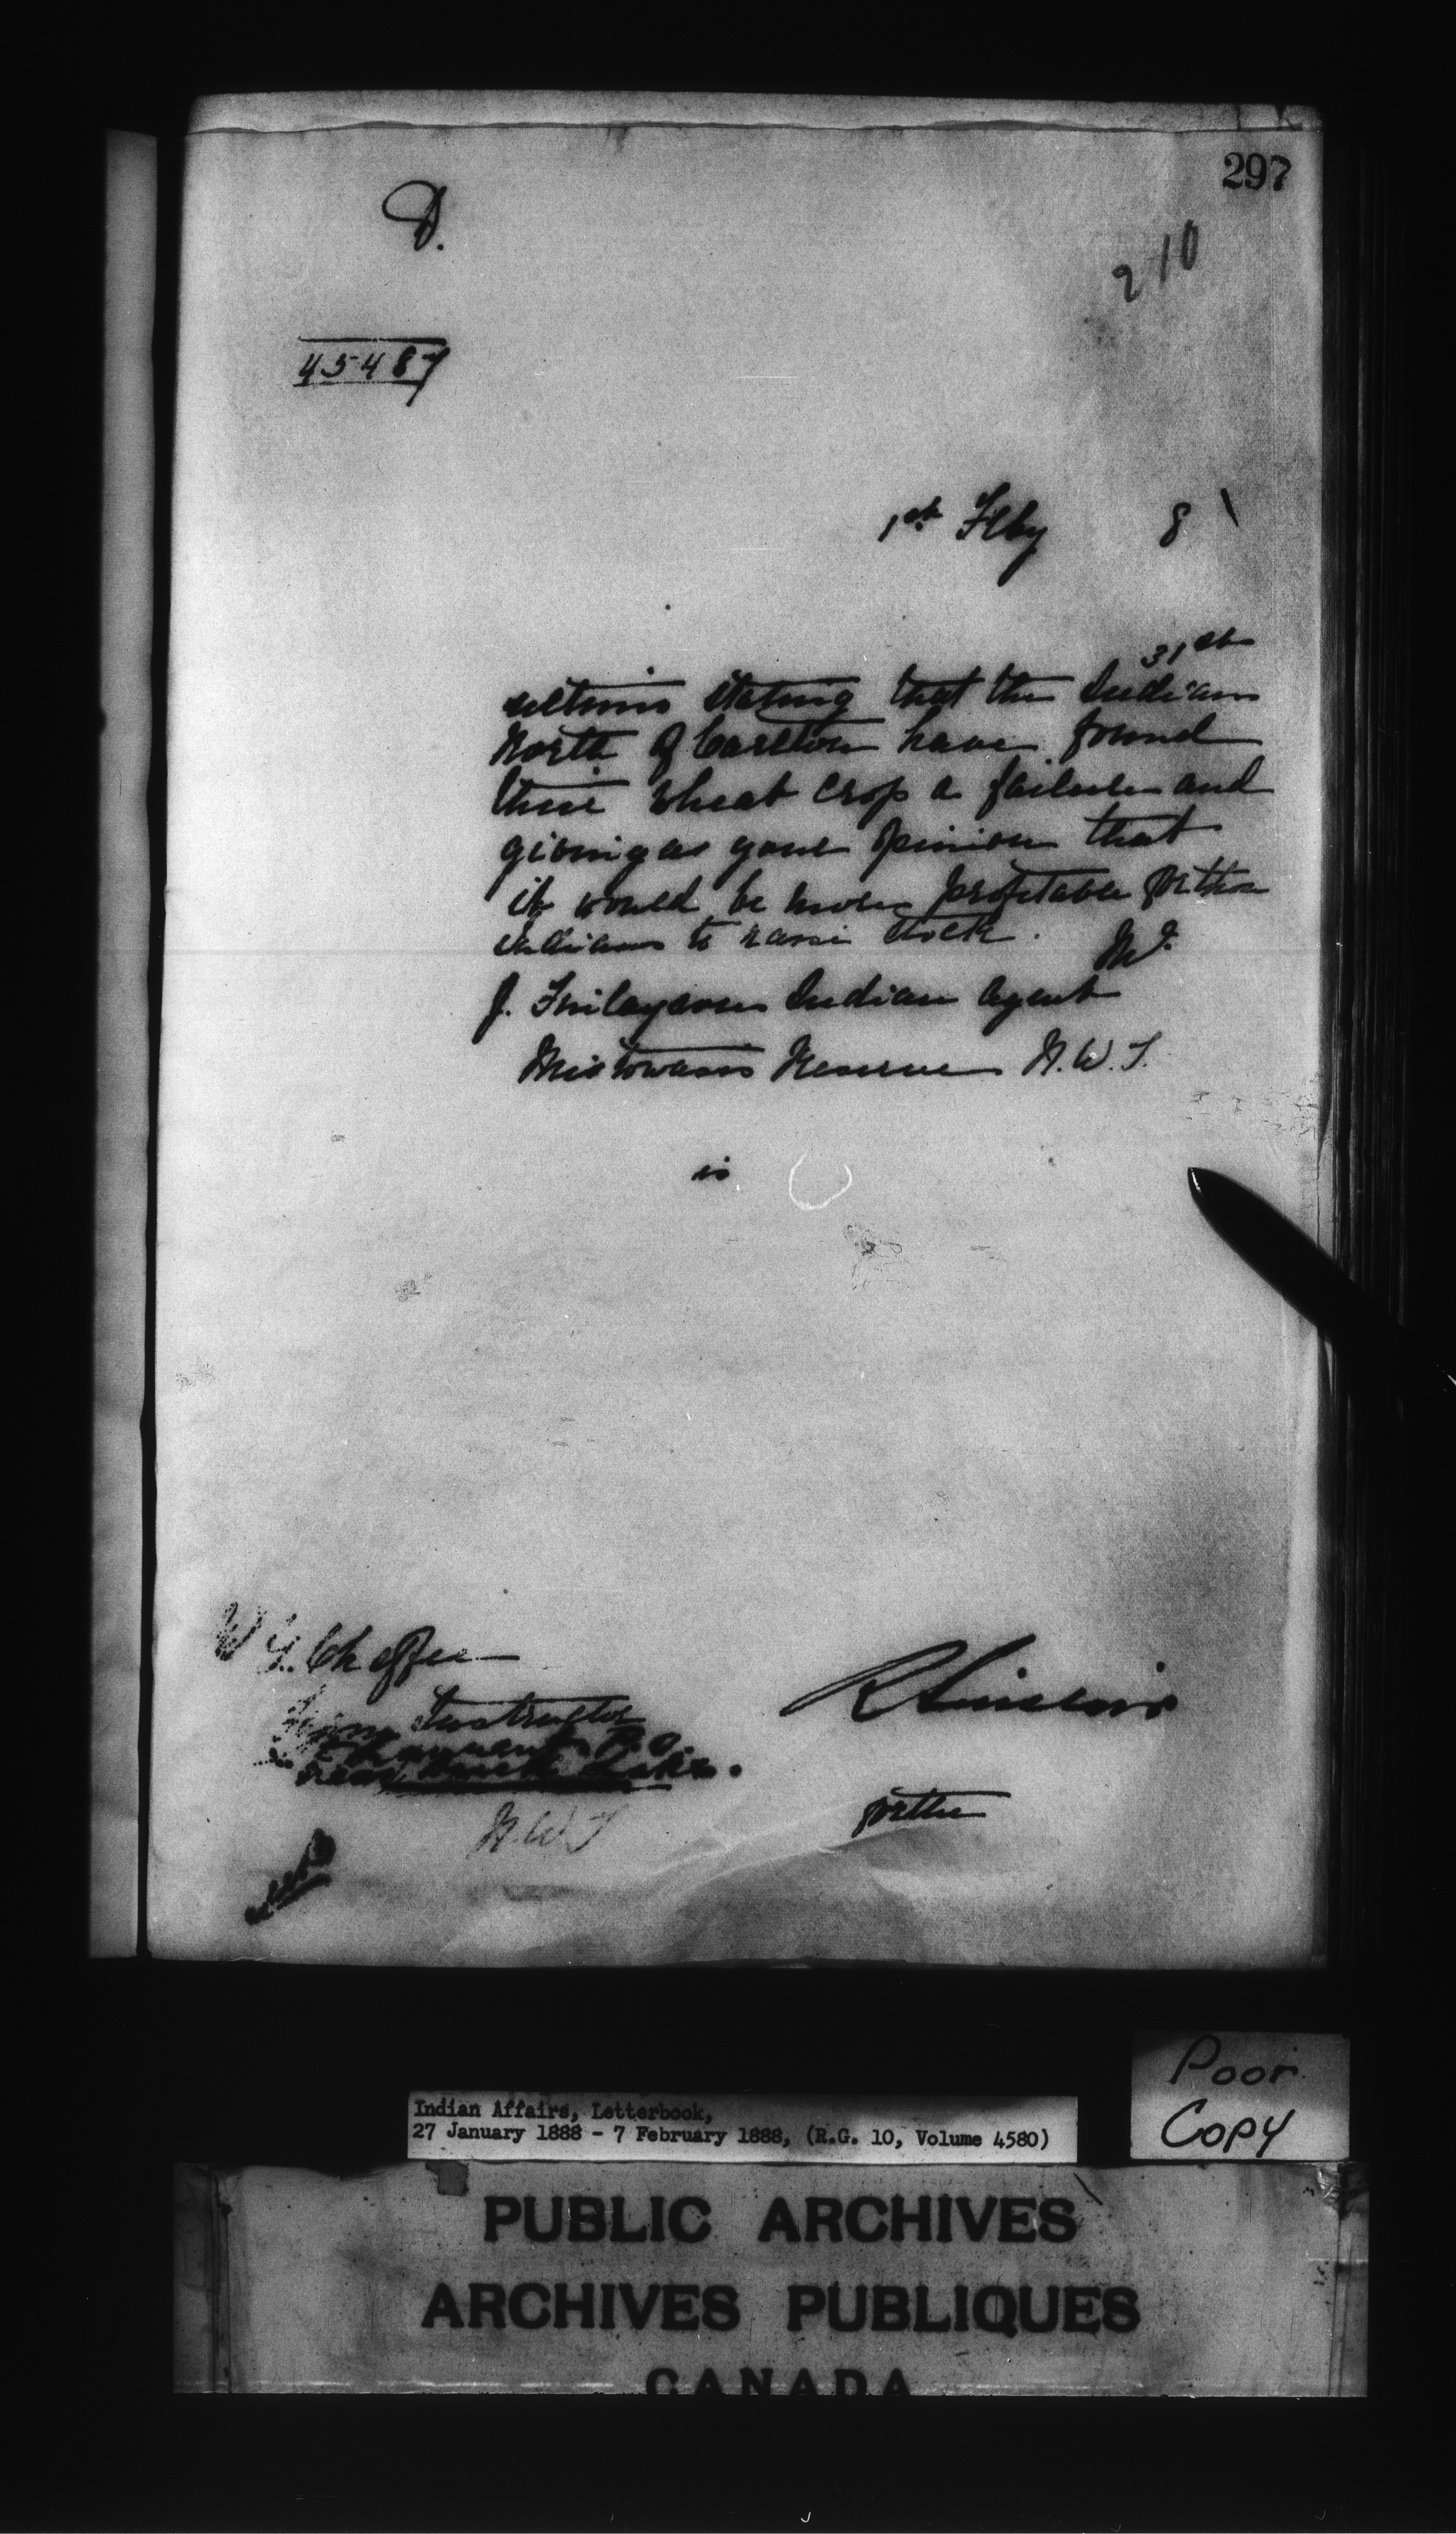 297
D.
210
45487
1st Feby 8
31st
ultimo stating that the Indians
North of Carlton have found
their wheat crop a failure and
giving as your opinion that
it would be more profitable for the
Indians to raise stock. Mr.
J. Finlayson Indian Agent
Mistowasis Reserve N.W.T.
is
W Y. Chaffee
Farm Instructor
P.O.
near Duck Lake.
N.W.T
R Sinclair
for the
Poor
Copy
Indian Affairs, Letterbook,
27 January 1888 - 7 February 1888, (R.G. 10, Volume 4580)
PUBLIC ARCHIVES
ARCHIVES PUBLIQUES
CANADA